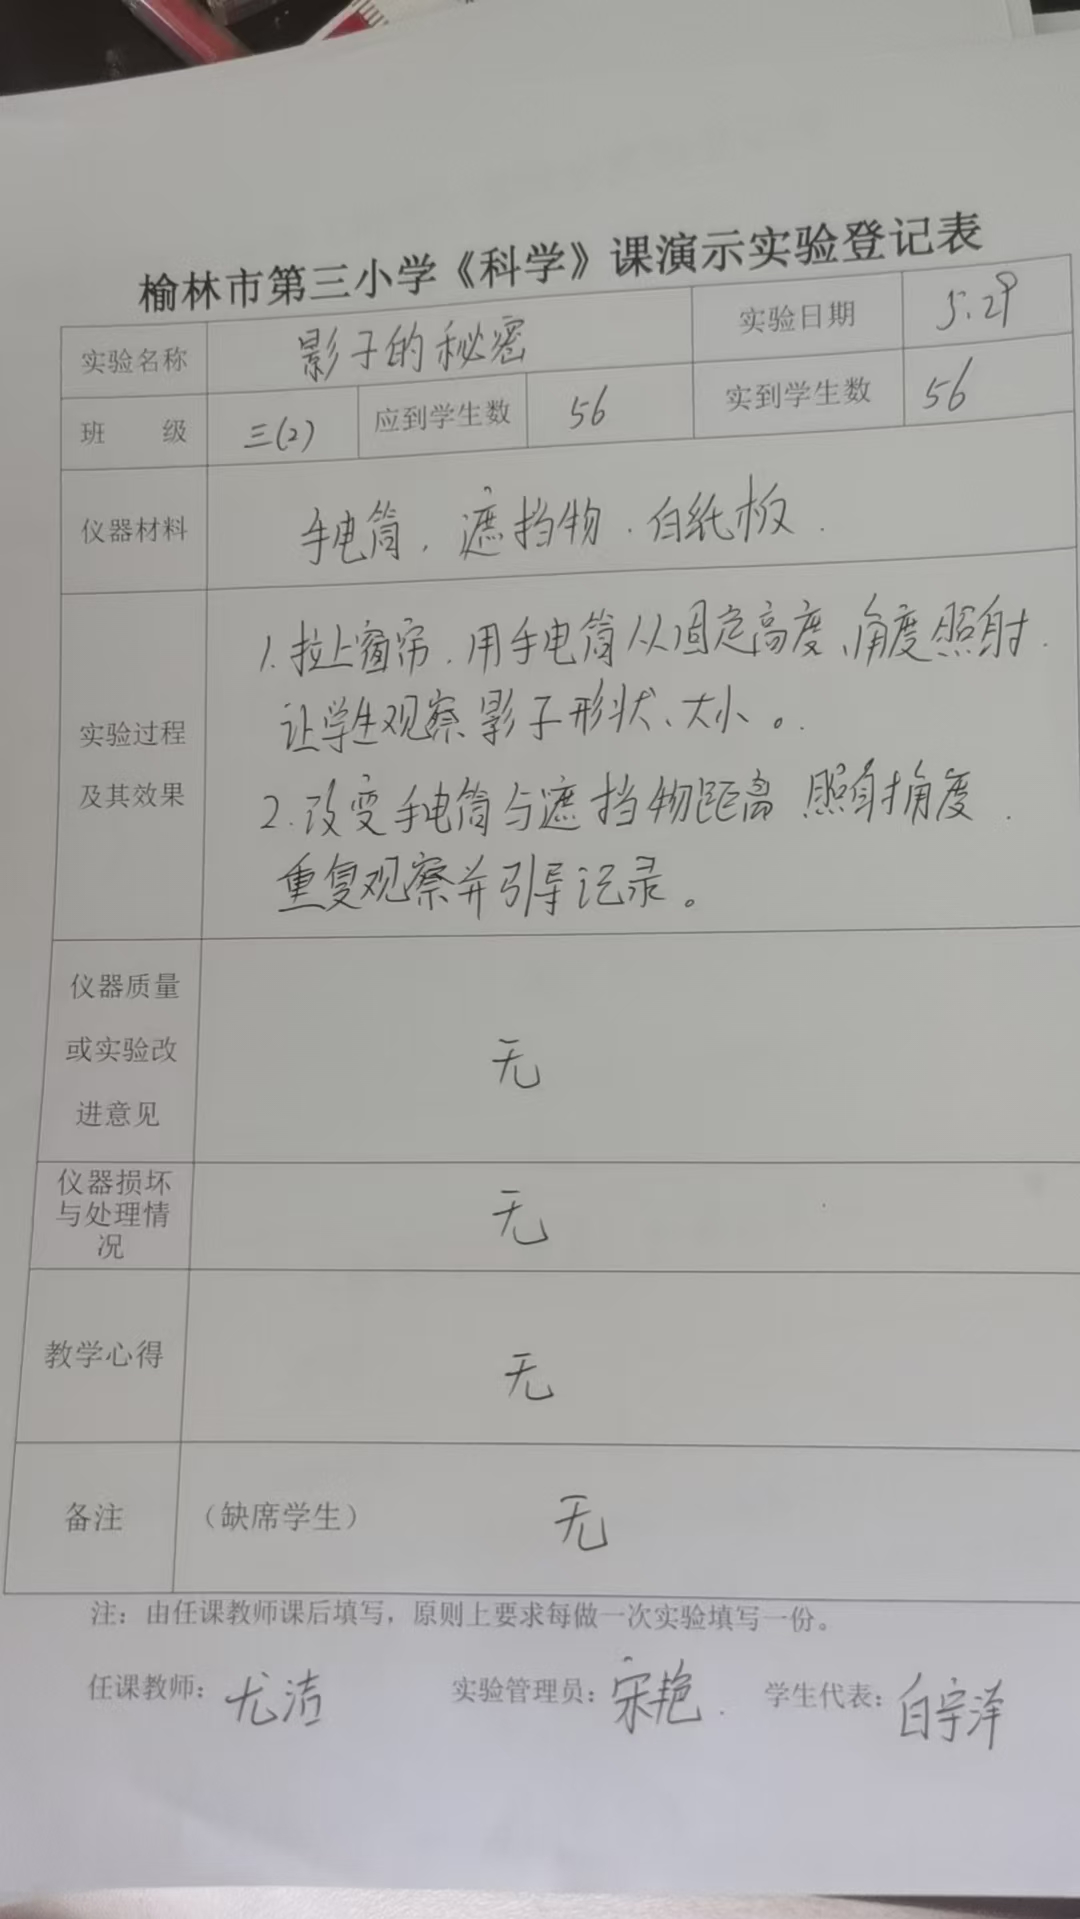 榆林市第三小学《科学》课演示实验登记表
实验名称 影子的秘密 实验日期 5.29
班 级 三(2) 应到学生数 56 实到学生数 56
仪器材料 手电筒，遮挡物．白纸板．
1.拉上窗帘．用手电筒从固定高度、角度照射．
让学生观察影子形状、大小。
实验过程
及其效果
2.改变手电筒与遮挡物距离 照射角度．
重复观察并引导记录。
仪器质量
或实验改
进意见
无
仪器损坏
与处理情
况
无
教学心得 无
备注 （缺席学生） 无
注：由任课教师课后填写，原则上要求每做一次实验填写一份。
任课教师：尤洁 实验管理员：宋艳． 学生代表：白宇泽